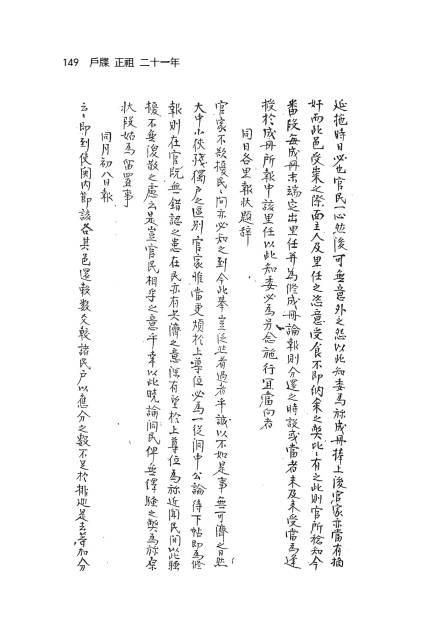 149 戶牒 正祖 二十一年
延拖時日必也官民一心然後可無意外之怨以此知委爲旀成冊捧上後官家亦當有摘
奸而此邑受糶之際面主人及里任之恣意受食不卽納之弊比〻有之此則官所稔知今
番段每成冊末端定出里任并爲修成冊論報則分還之時設或當者未及來受當爲逢
授於成冊所報中該里任以此知委必爲另念施行宜當向者
同日各里報狀題辭
官家不欲擾民〻間亦必知之到今此擧豈者過者乎誠以不如是事無可濟之日然
大中小伏殘獨戶之區別官家惟當更煩於上尊位必爲一從洞中公論待下帖卽爲修
報則在官旣無錯認之患在民亦有共濟之意深有望於上尊位爲旀近聞民間以此騷
擾不無復散之慮云是豈官民相孚之意乎幸以此曉諭間民俾無繹騷之弊爲旀原
狀段姑爲留置事
同月初八日報
云〻卽到使關內節該各其邑還穀數爻較諸民戶以應分之數不足於排巡是去等加分